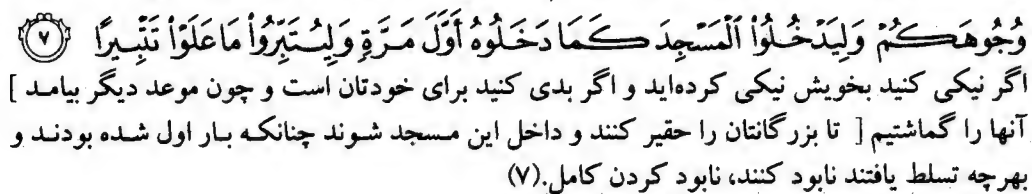 وُجُوهَكُمْ وَلِيَدْخُلُواْ ٱلْمَسْجِدَ كَمَا دَخَلُوهُ أَوَّلَ مَرَّةٍ وَلِيُتَبِّرُواْ مَا عَلَوْاْ تَتْبِيرًا ﴿٧﴾
اگر نیکی کنید بخویش نیکی کرده‌اید و اگر بدی کنید برای خودتان است و چون موعد دیگر بیامد [
آنها را گماشتیم ] تا بزرگانتان را حقیر کنند و داخل این مسجد شوند چنانکه بار اول شده بودند و
بهرچه تسلط یافتند نابود کنند، نابود کردن کامل.(۷)